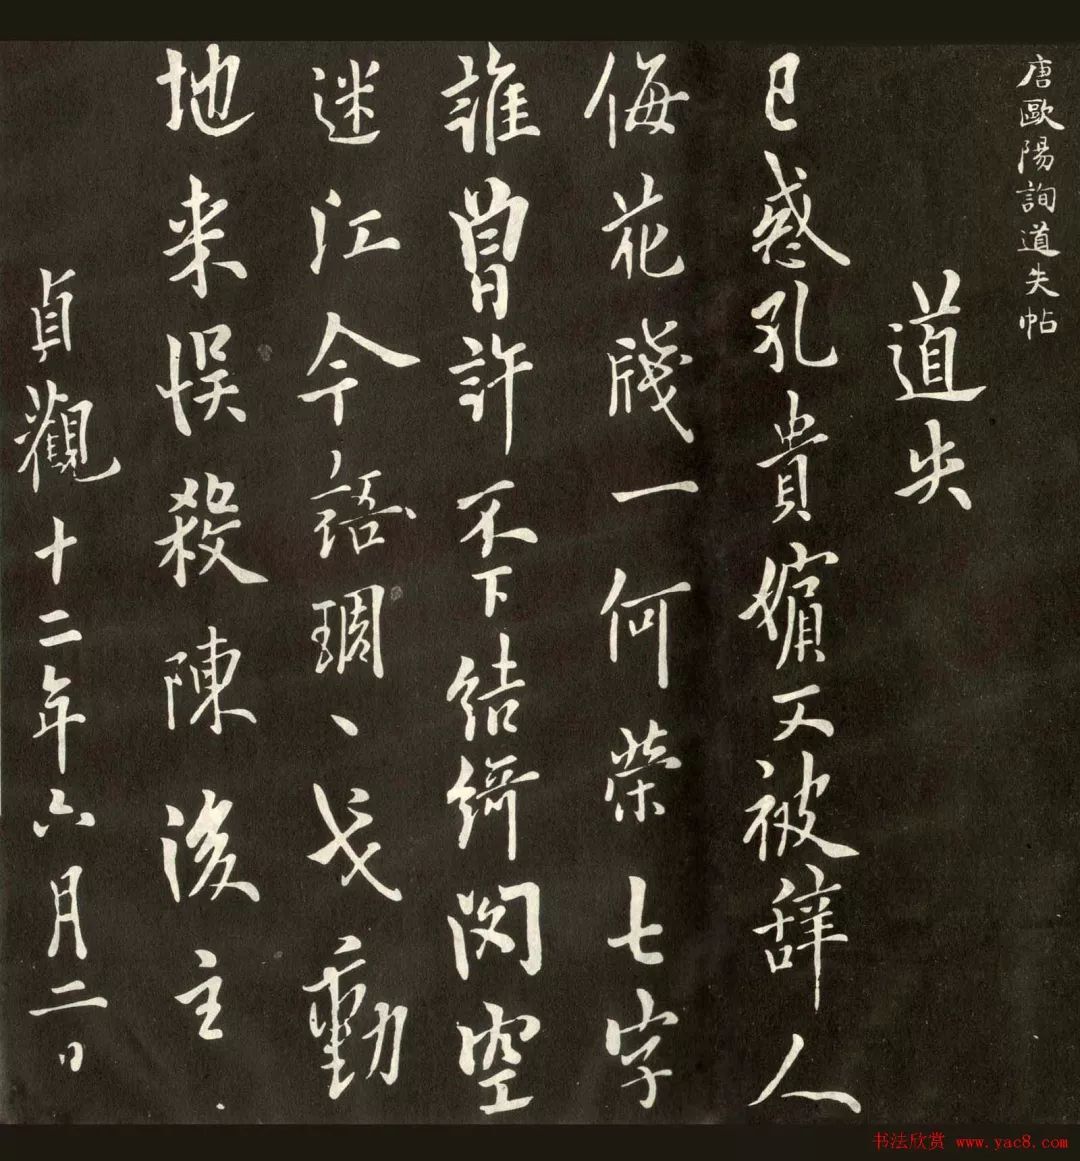 唐歐陽詢道失帖
道失
已惑孔貴嬪又被辞人
侮花牋一何荣七字
誰曾許不下結綺閣空
迷江令語琱丶戈動
地来悮殺陳後主
貞觀十二年六月二日
书法欣赏 www.yac8.com